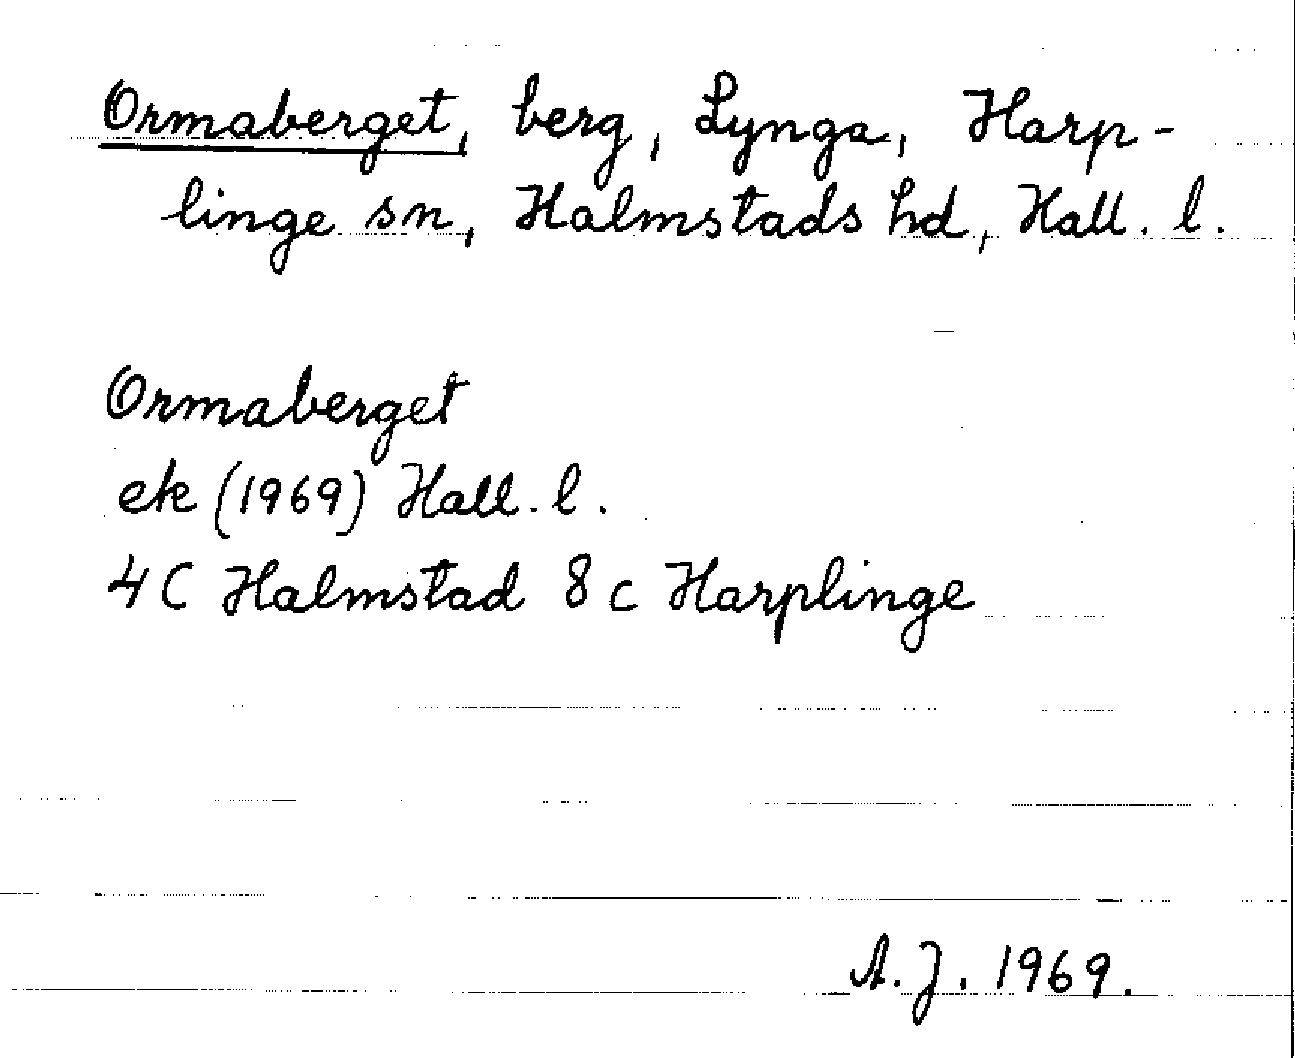 Ormaberget, berg, Lynga, Harp-
linge sn, Halmstads hd, Hall. l.
Ormaberget
ek (1969) Hall. l.
4C Halmstad 8c Harplinge
A.J. 1969.